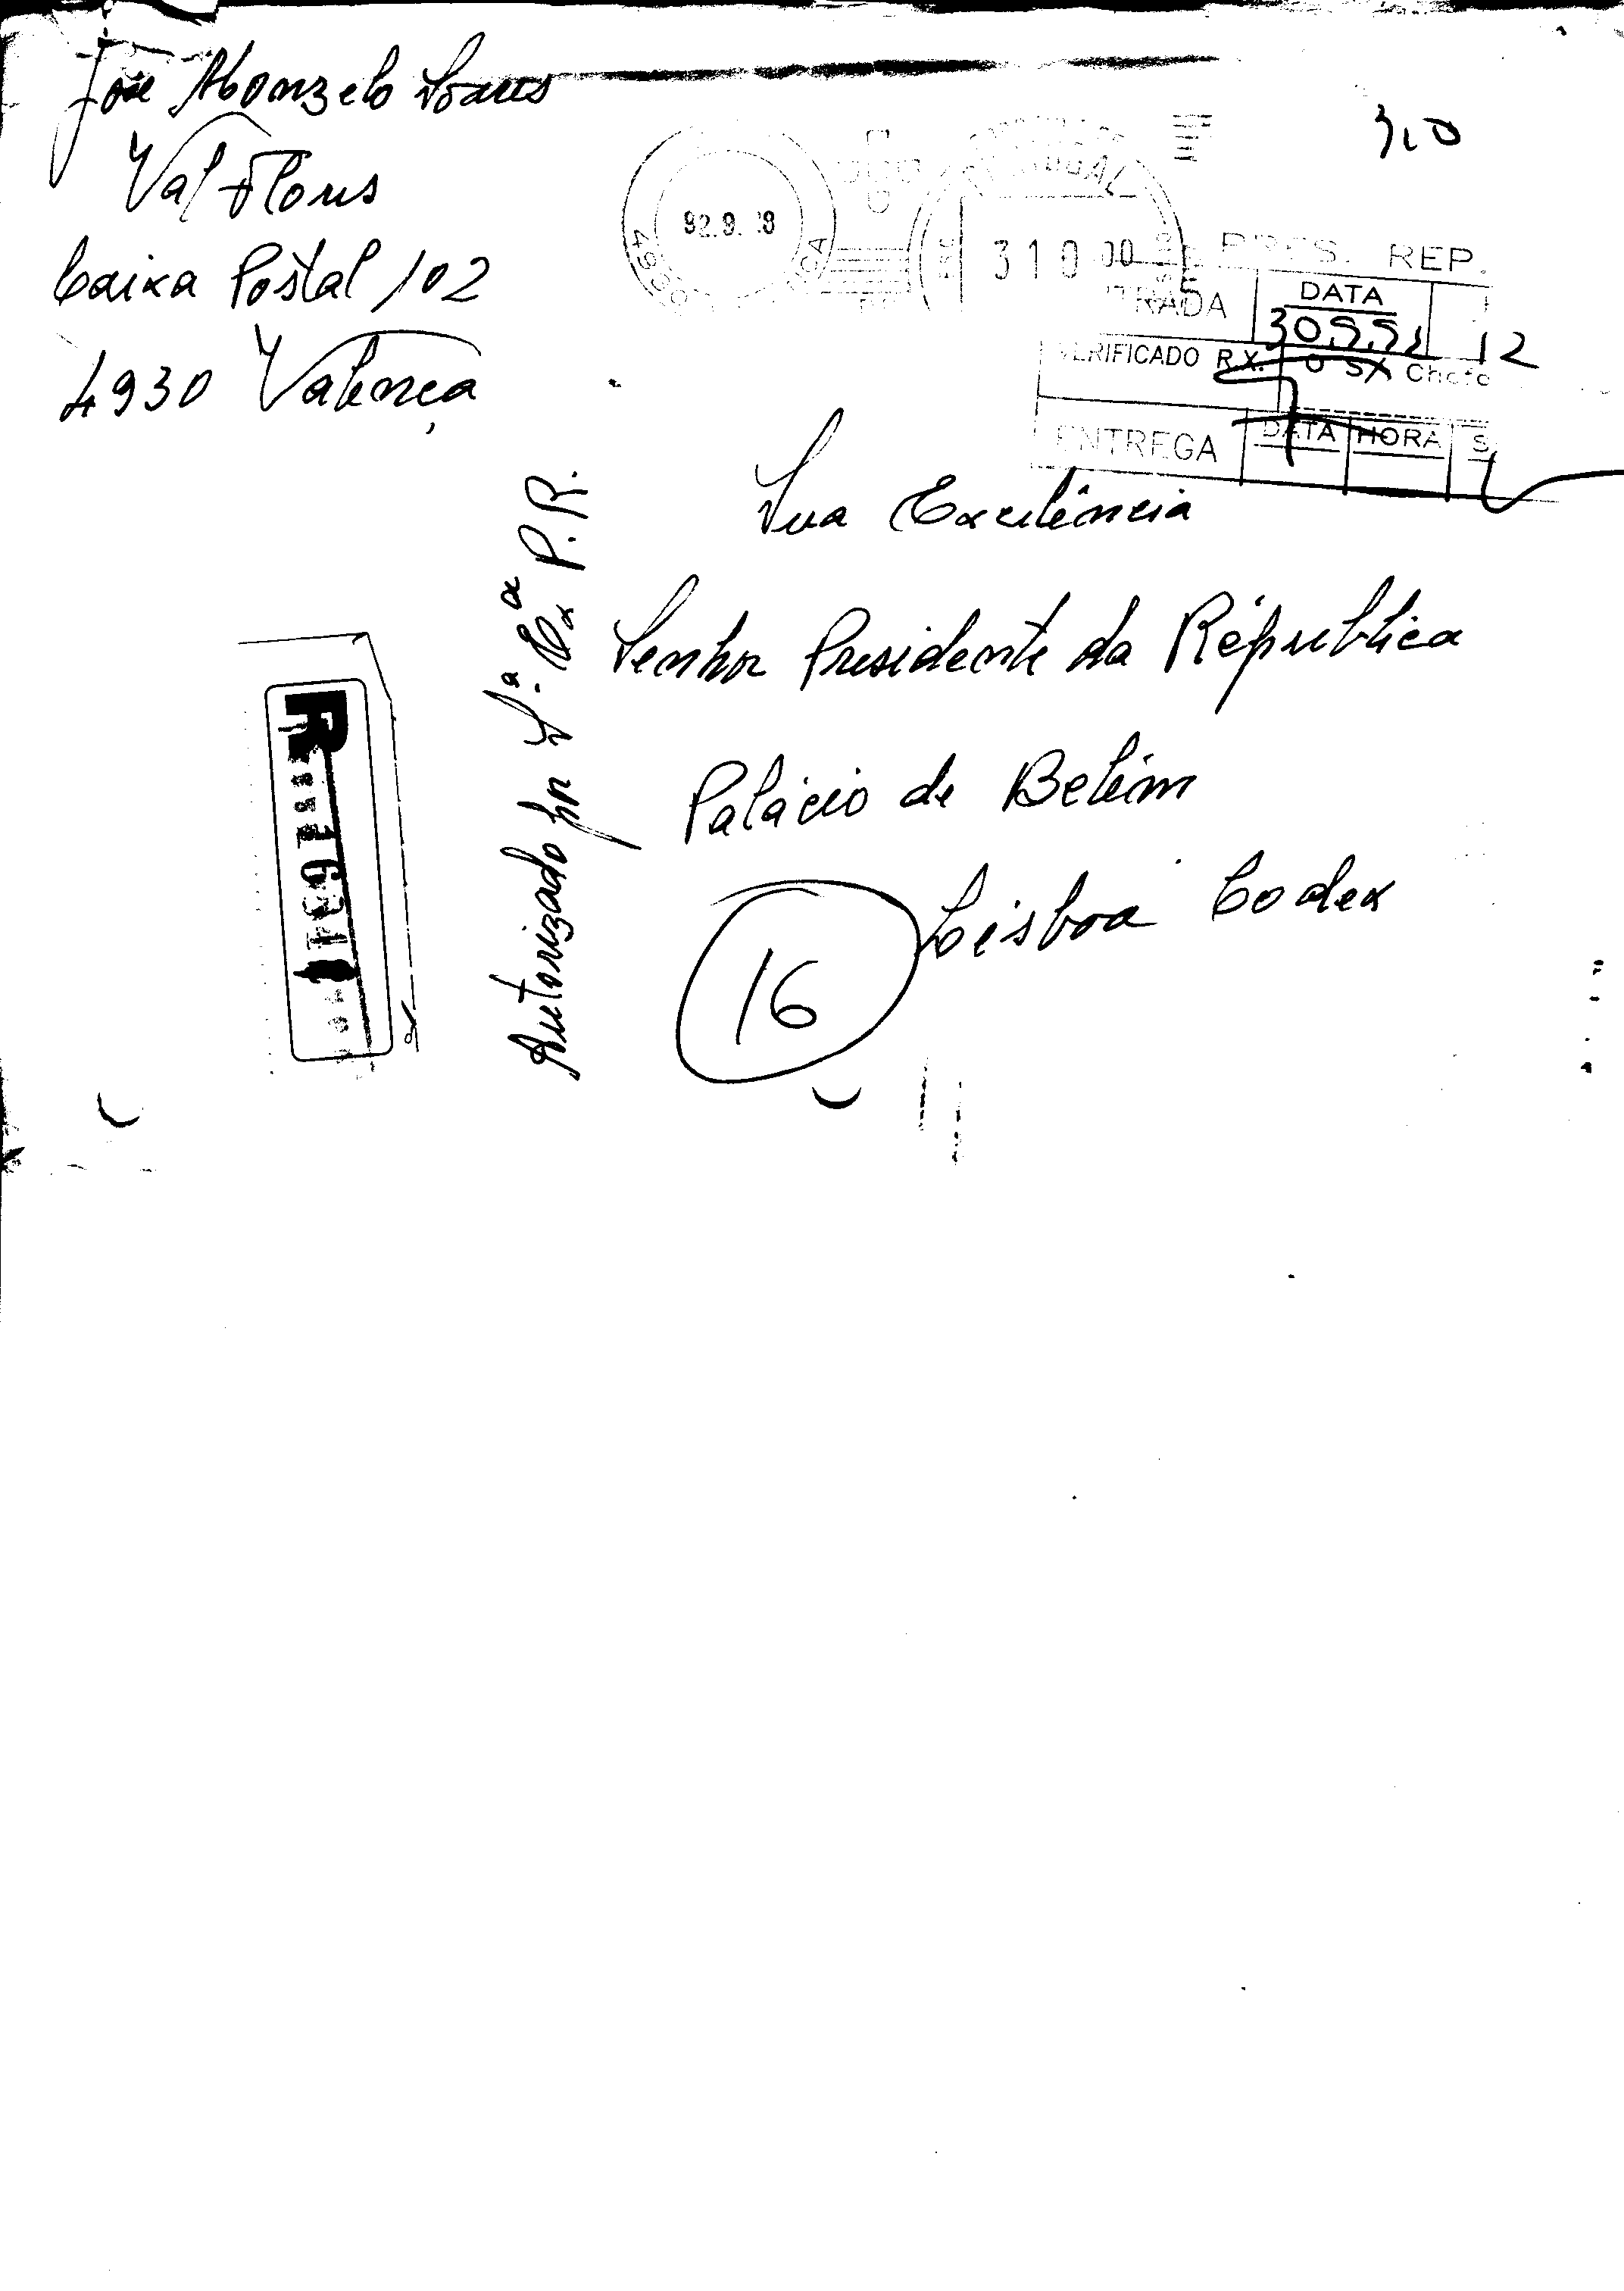 José Soares
Val Flores
Caixa Postal 102
4930 Valença
3,0
92.9.
4930
PORTUGAL
310 00
PRES. REP.
DATA
12
VERIFICADO R.X. O Chefe
ENTREGA DATA HORA S
Sua Excelência
Senhor Presidente da Républica
Palácio de Belém
Lisboa Codex
16
Autorizado por S.ª Exª P.R.
R